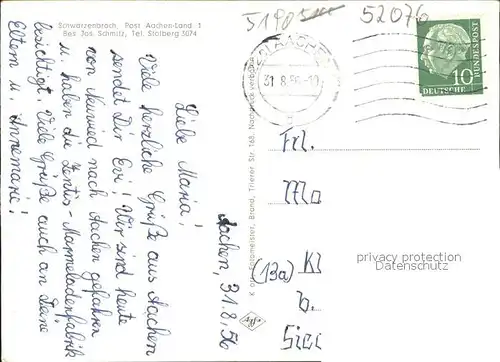 Schwarzenbroch, Post Aachen-Land 1
Bes. Jos Schmitz, Tel. Stolberg 3074
52076
AACHEN
31.8.56
10
DEUTSCHE
BUNDESPOST
Aachen, 31.8.56
Liebe Maria!
Viele herzliche Grüße aus Aachen
sendet Dir Evi! Wir sind heute
von Neuwied nach Aachen gefahren
u. haben die Zentis-Marmeladenfabrik
besichtigt. Viele Grüße auch an Deine
Eltern u. Annemarie!
Brand, Trierer Str. 168, Nachdruck verboten
Frl.
Mo
(13a) Kl
b.
privacy protection
Datenschutz